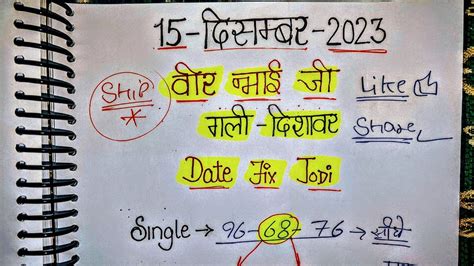 15-दिसम्बर-2023
Ship वीर न्माई जी Like
गली-दिशावर Share
Date Fix Jodi
Single → 96-68-76 → सीधे